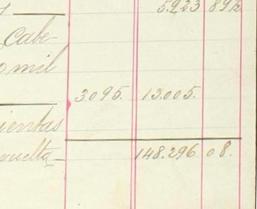 5.923 89½
Cabe-
o mil
3.095. 13.005.
ientas
vuelta 148.296 08.